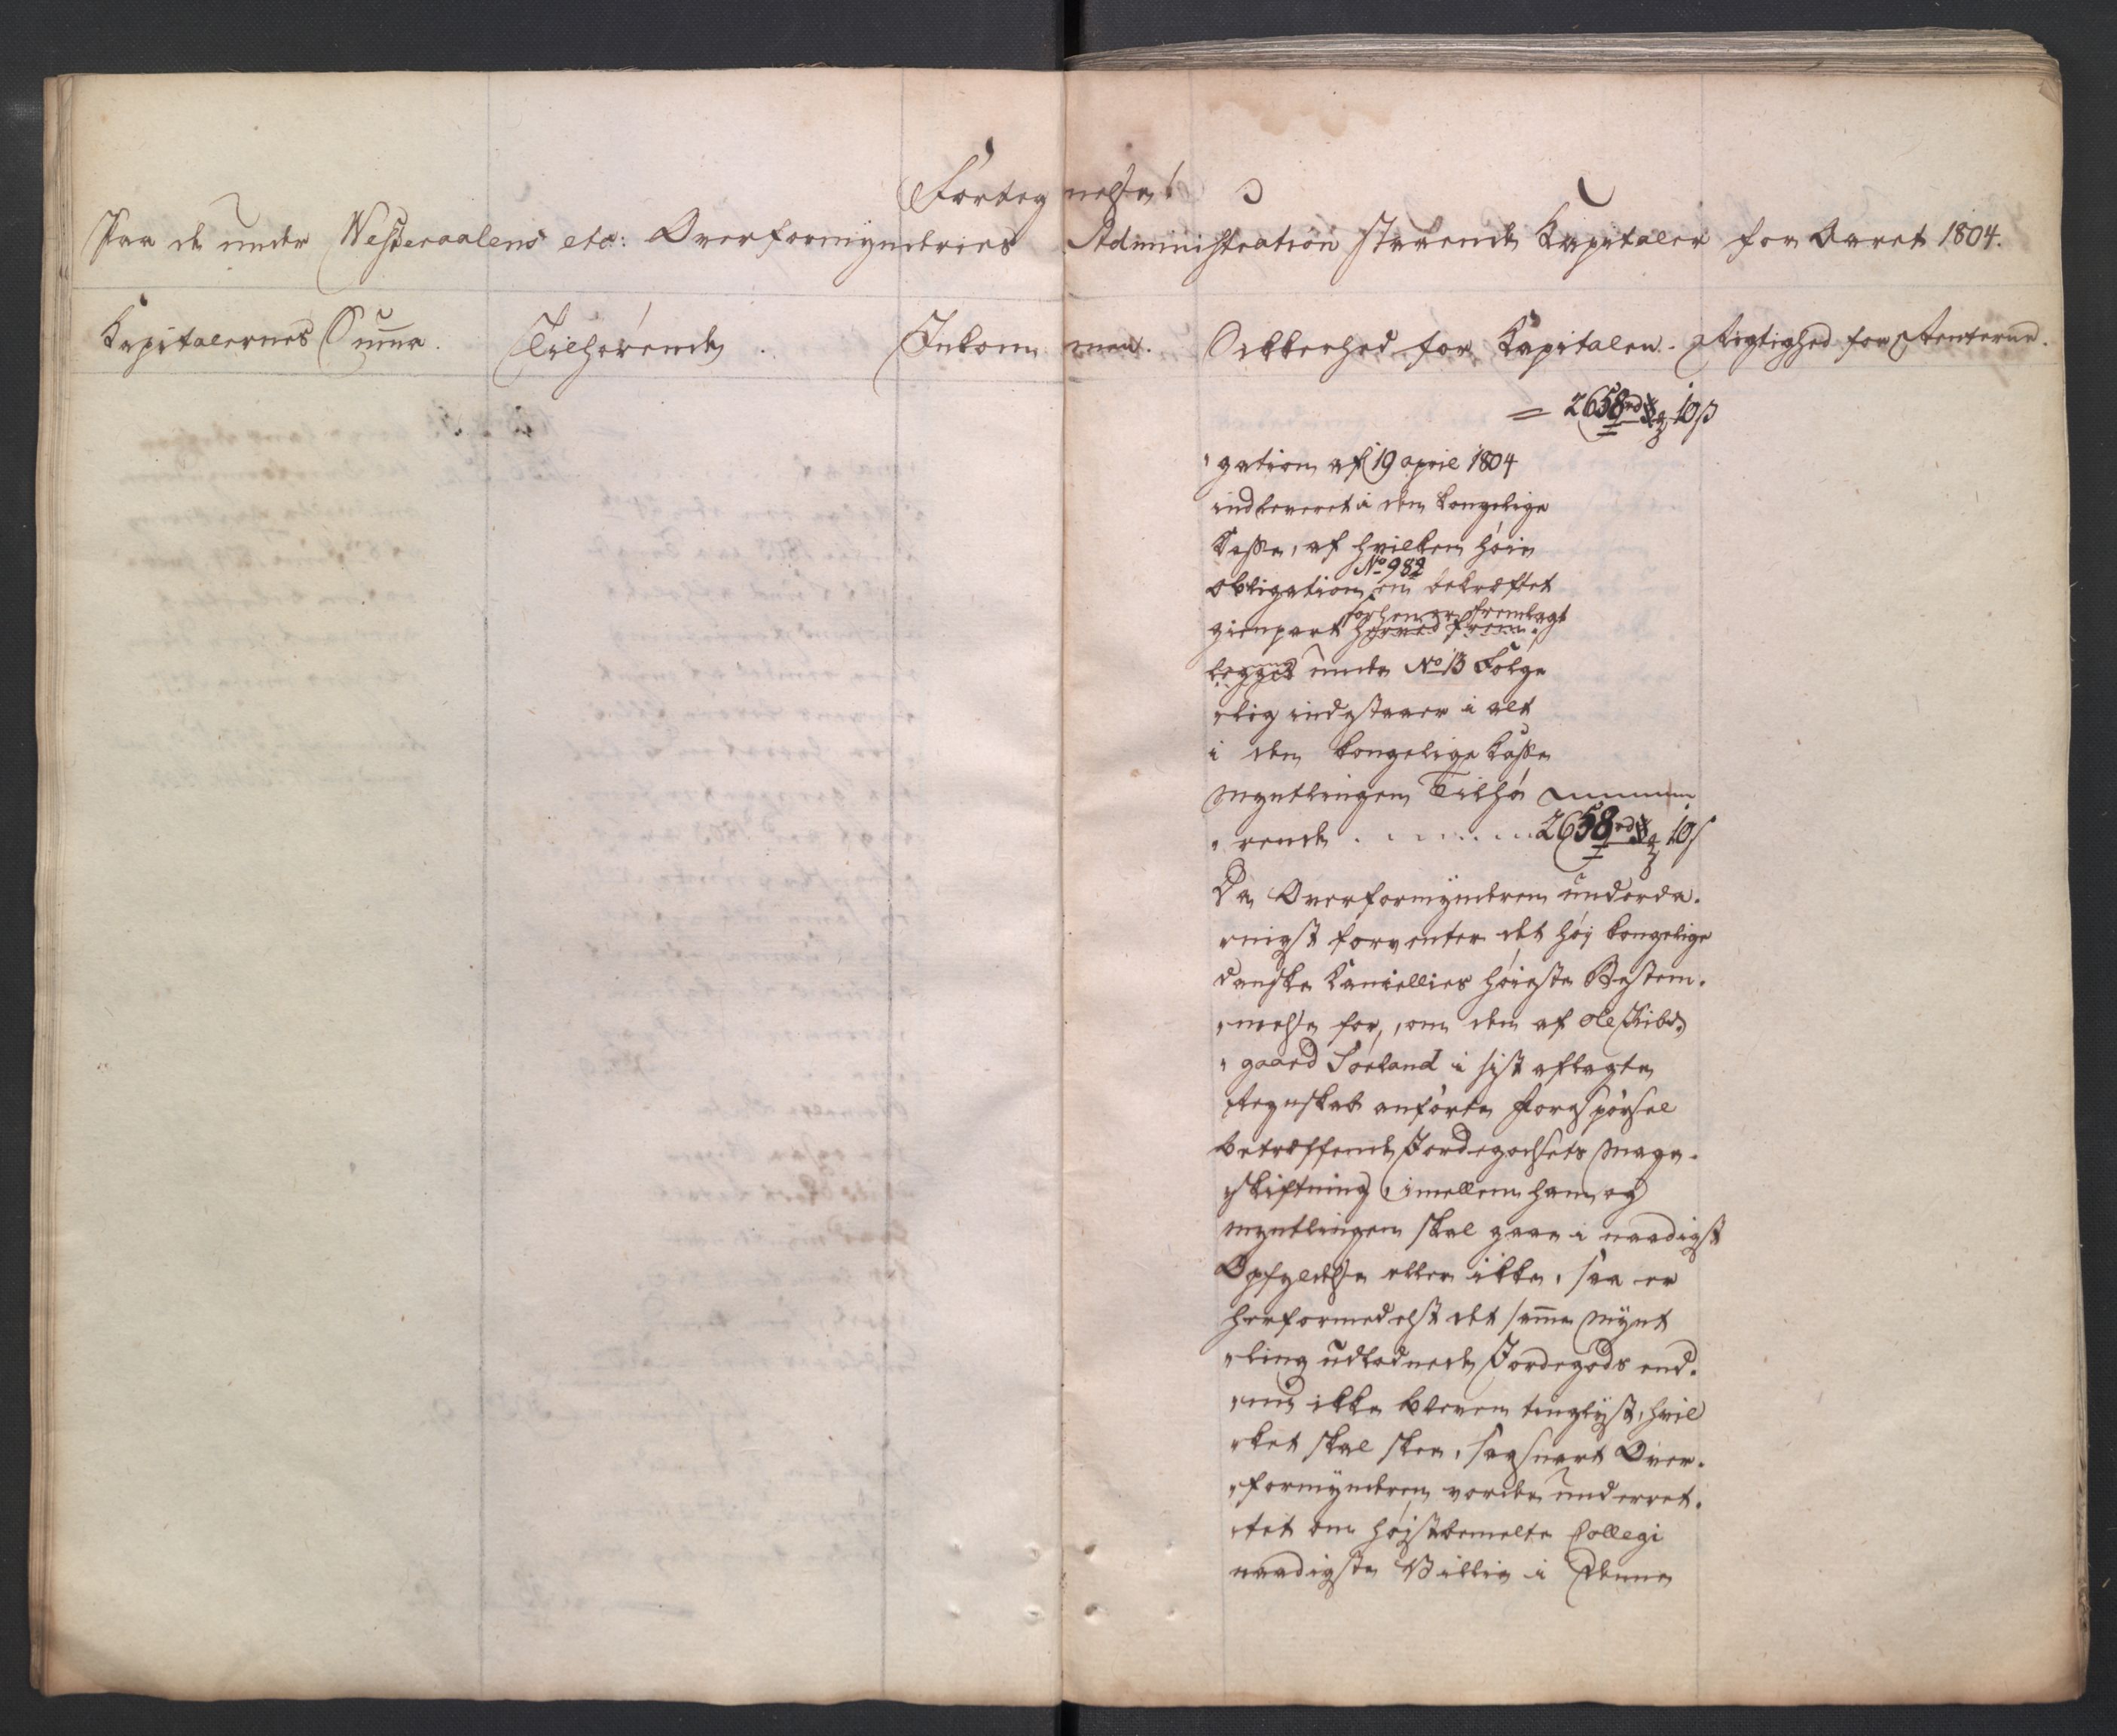 Fortegnelse
Paa de under Westeraalens etc: Overformynderies Administration staaende Kapitaler for Aaret 1804.
Kapitalernes Suma. Tilhørende. Inkommen. Sikkerhed for Kapitalen. Rigtighed for Renterne.
= 2658 rd 10 s
gation af 19 april 1804
indleveret i den kongelige
Kasse, af hvilken høie
No 982
Obligation en bekræftet
forhen er fremlagt
gienpart herved frem
legges under No 13 Følge
lig indestaaer i alt
i den kongelige Kasse
Myntlingen Tilhø
rende . . . . . . . 2658 rd 10 s
Da Overformynderen underda
nigst forventer det høj kongelige
danske Kancellies høieste Bestem
melse for, om den af Ole
gaard Sørland i sist aflagte
Regnskab anførte Forespørsel
betræffende Jordegodsets Mage
skiftning imellem ham og
Myntlingen skal gaae i naadigst
Opfyldelse eller ikke, saa er
herformedelst det samme Mynt
ling udlodnede Jordegods end
nu ikke bleven tinglyst, hvil
ket skal skee, saasnart Over
formynderen vorder underret
tet om højstbemelte Collegi
naadigste Villie i denne